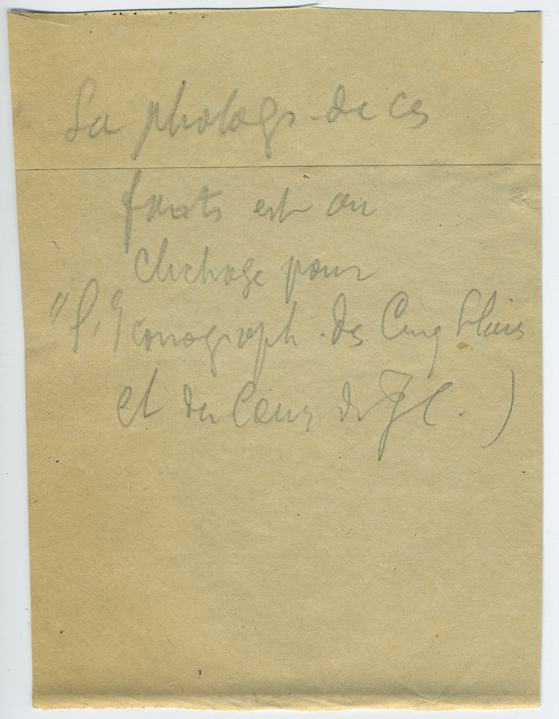 La photogr. de ces
fonts est au
clichage pour
"l'Iconograph. des Cinq Plaies
et du Coeur de J C. )